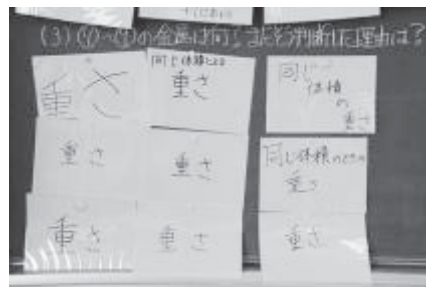 (3) の金属は何？またそう判断した理由は？
重さ
同じ体積による
重さ
同じ
体積
の
重さ
重さ
重さ
同じ体積のときの
重さ
重さ
重さ
重さ